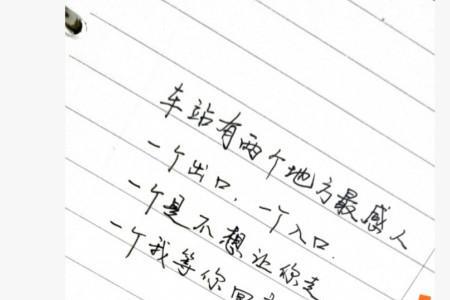 车站有两个地方最感人
一个出口，一个入口.
一个是不想让你走
一个我等你回